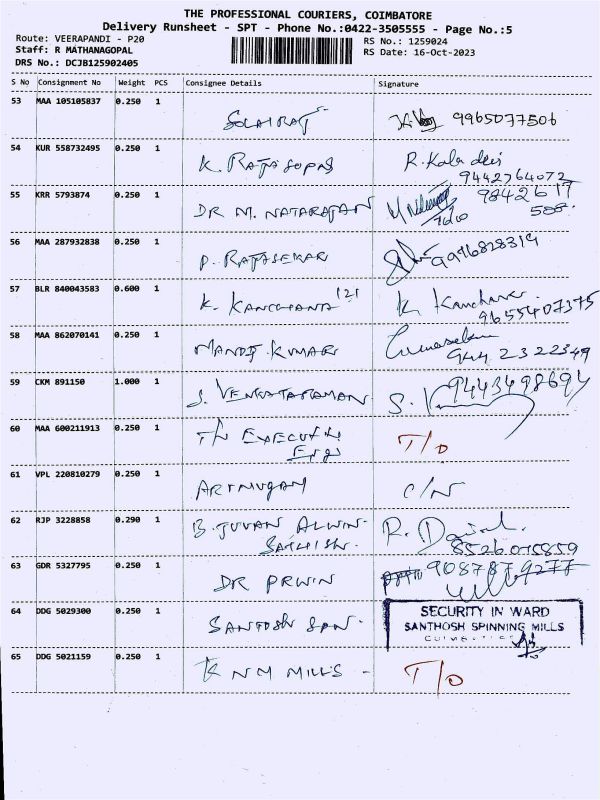 THE PROFESSIONAL COURIERS, COIMBATORE
Delivery Runsheet - SPT - Phone No.:0422-3505555 - Page No.:5
Route: VEERAPANDI - P20 RS No.: 1259024
Staff: R MATHANAGOPAL RS Date: 16-Oct-2023
DRS No.: DCJB125902405
S No Consignment No Weight PCS Consignee Details Signature
53 MAA 105105837 0.250 1 SOLAIRAJ 9965077506
54 KUR 558732495 0.250 1 K. RAJAGOPAL R. Kala devi
9442764072
55 KRR 5793874 0.250 1 DR M. NATARAJAN 9842617
56 MAA 287932838 0.250 1 P. RAJASEKAR 9976828319
57 BLR 840043583 0.600 1 K. KANCHANA 121 K Kanchana.
9655407375
58 MAA 862070141 0.250 1 MANOJ.KUMAR
944 2322349
59 CKM 891150 1.000 1 S. VENKATARAMAN S. 9443498694
60 MAA 600211913 0.250 1 EXECUTIVE T/O
Engr
61 VPL 220810279 0.250 1 ARUMUGAM C/N
62 RJP 3228858 0.290 1 B. JUVAN ALWIN. R.
SATHISH. 8526015859
63 GDR 5327795 0.250 1 DR PRWIN 9087879277
64 DDG 5029300 0.250 1 SANTOSH SPN. SECURITY IN WARD
SANTHOSH SPINNING MILLS
65 DDG 5021159 0.250 1 K N M MILLS - T/O